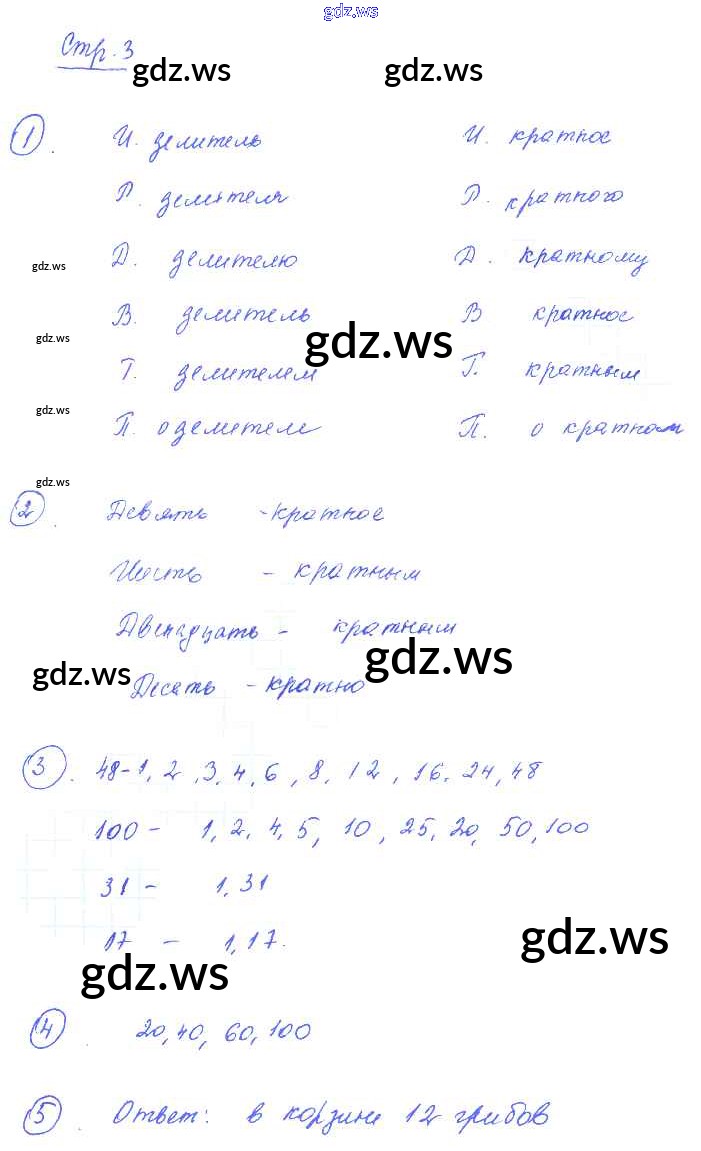 gdz.ws
Стр. 3
gdz.ws gdz.ws
1. И. делитель И. кратное
Р. делителя Р. кратного
gdz.ws Д. делителю Д. кратному
В. делитель В кратное
gdz.ws gdz.ws
Т. делителем Т. кратным
gdz.ws П. о делителе П. о кратном
gdz.ws
2. Девять - кратное
Шесть - кратным
Двенадцать - кратным
gdz.ws gdz.ws
Десять - кратно
3. 48 - 1, 2, 3, 4, 6, 8, 12, 16, 24, 48
100 - 1, 2, 4, 5, 10, 25, 20, 50, 100
31 - 1, 31
17 - 1, 17.
gdz.ws gdz.ws
4. 20, 40, 60, 100
5. Ответ: в корзине 12 грибов